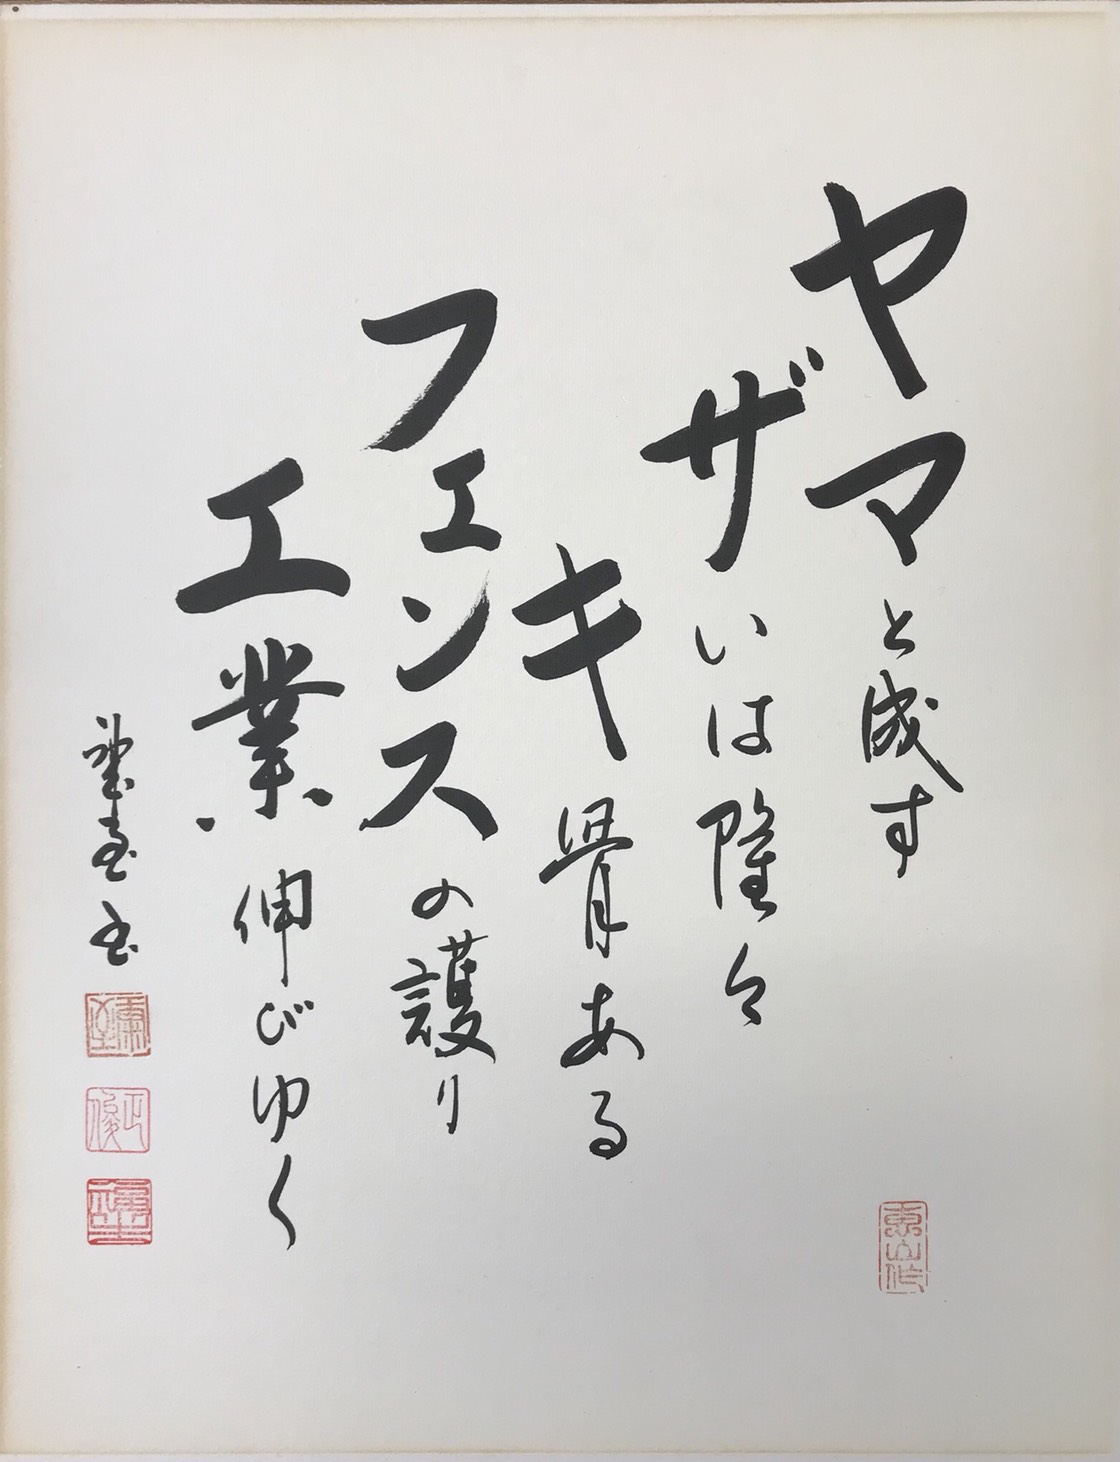 ヤマと成す
ザいは隆々
キ骨ある
フェンスの護り
工業、伸びゆく